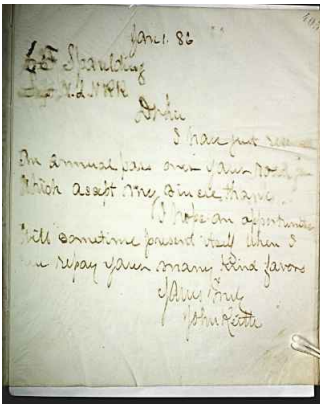 403
Jan 1. 86
Spaulding
Dr Sir
I have just received
an annual pass over your road for
which accept my sincere thanks
I hope an opportunity
will sometime present itself when I
can repay your many kind favors
Yours Truly
John Keith